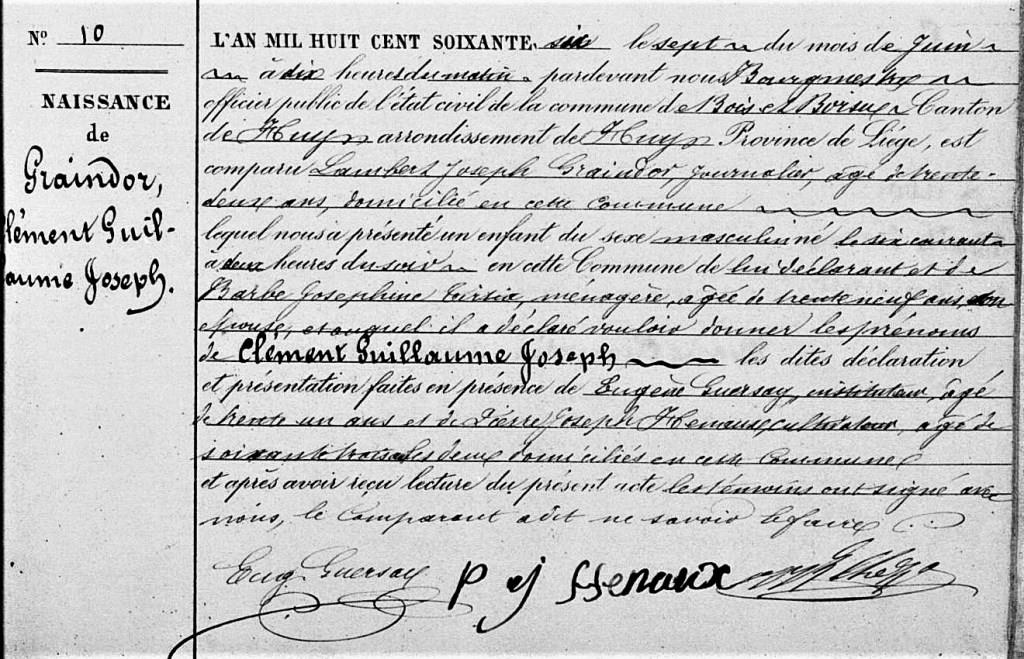 N° 10
NAISSANCE
de
Graindor,
Clément Guil-
laume Joseph.
L'AN MIL HUIT CENT SOIXANTE six le sept du mois de Juin
à dix heures du matin pardevant nous Bourgmestre
officier public de l'état civil de la commune de Bois et Borsu Canton
de Huy arrondissement de Huy Province de Liége, est
comparu Lambert Joseph Graindor, journalier, âgé de trente-
deux ans, domicilié en cette commune
lequel nous a présenté un enfant du sexe masculin né le six courant
à deux heures du soir en cette Commune de lui déclarant et de
Barbe Josephine ménagère, agée de trente neuf ans son
epouse, et auquel il a déclaré vouloir donner les prénoms
de Clément Guillaume Joseph les dites déclaration
et présentation faites en présence de Eugène Guersay, instituteur, âgé
de trente un ans et de Pierre Joseph Henaux, cultivateur, agé de
soixante trois ans les deux domiciliés en cette Commune
et après avoir reçu lecture du présent acte les témoins ont signé avec
nous, le Comparant a dit ne savoir le faire
Eug. Guersay P ej Henaux